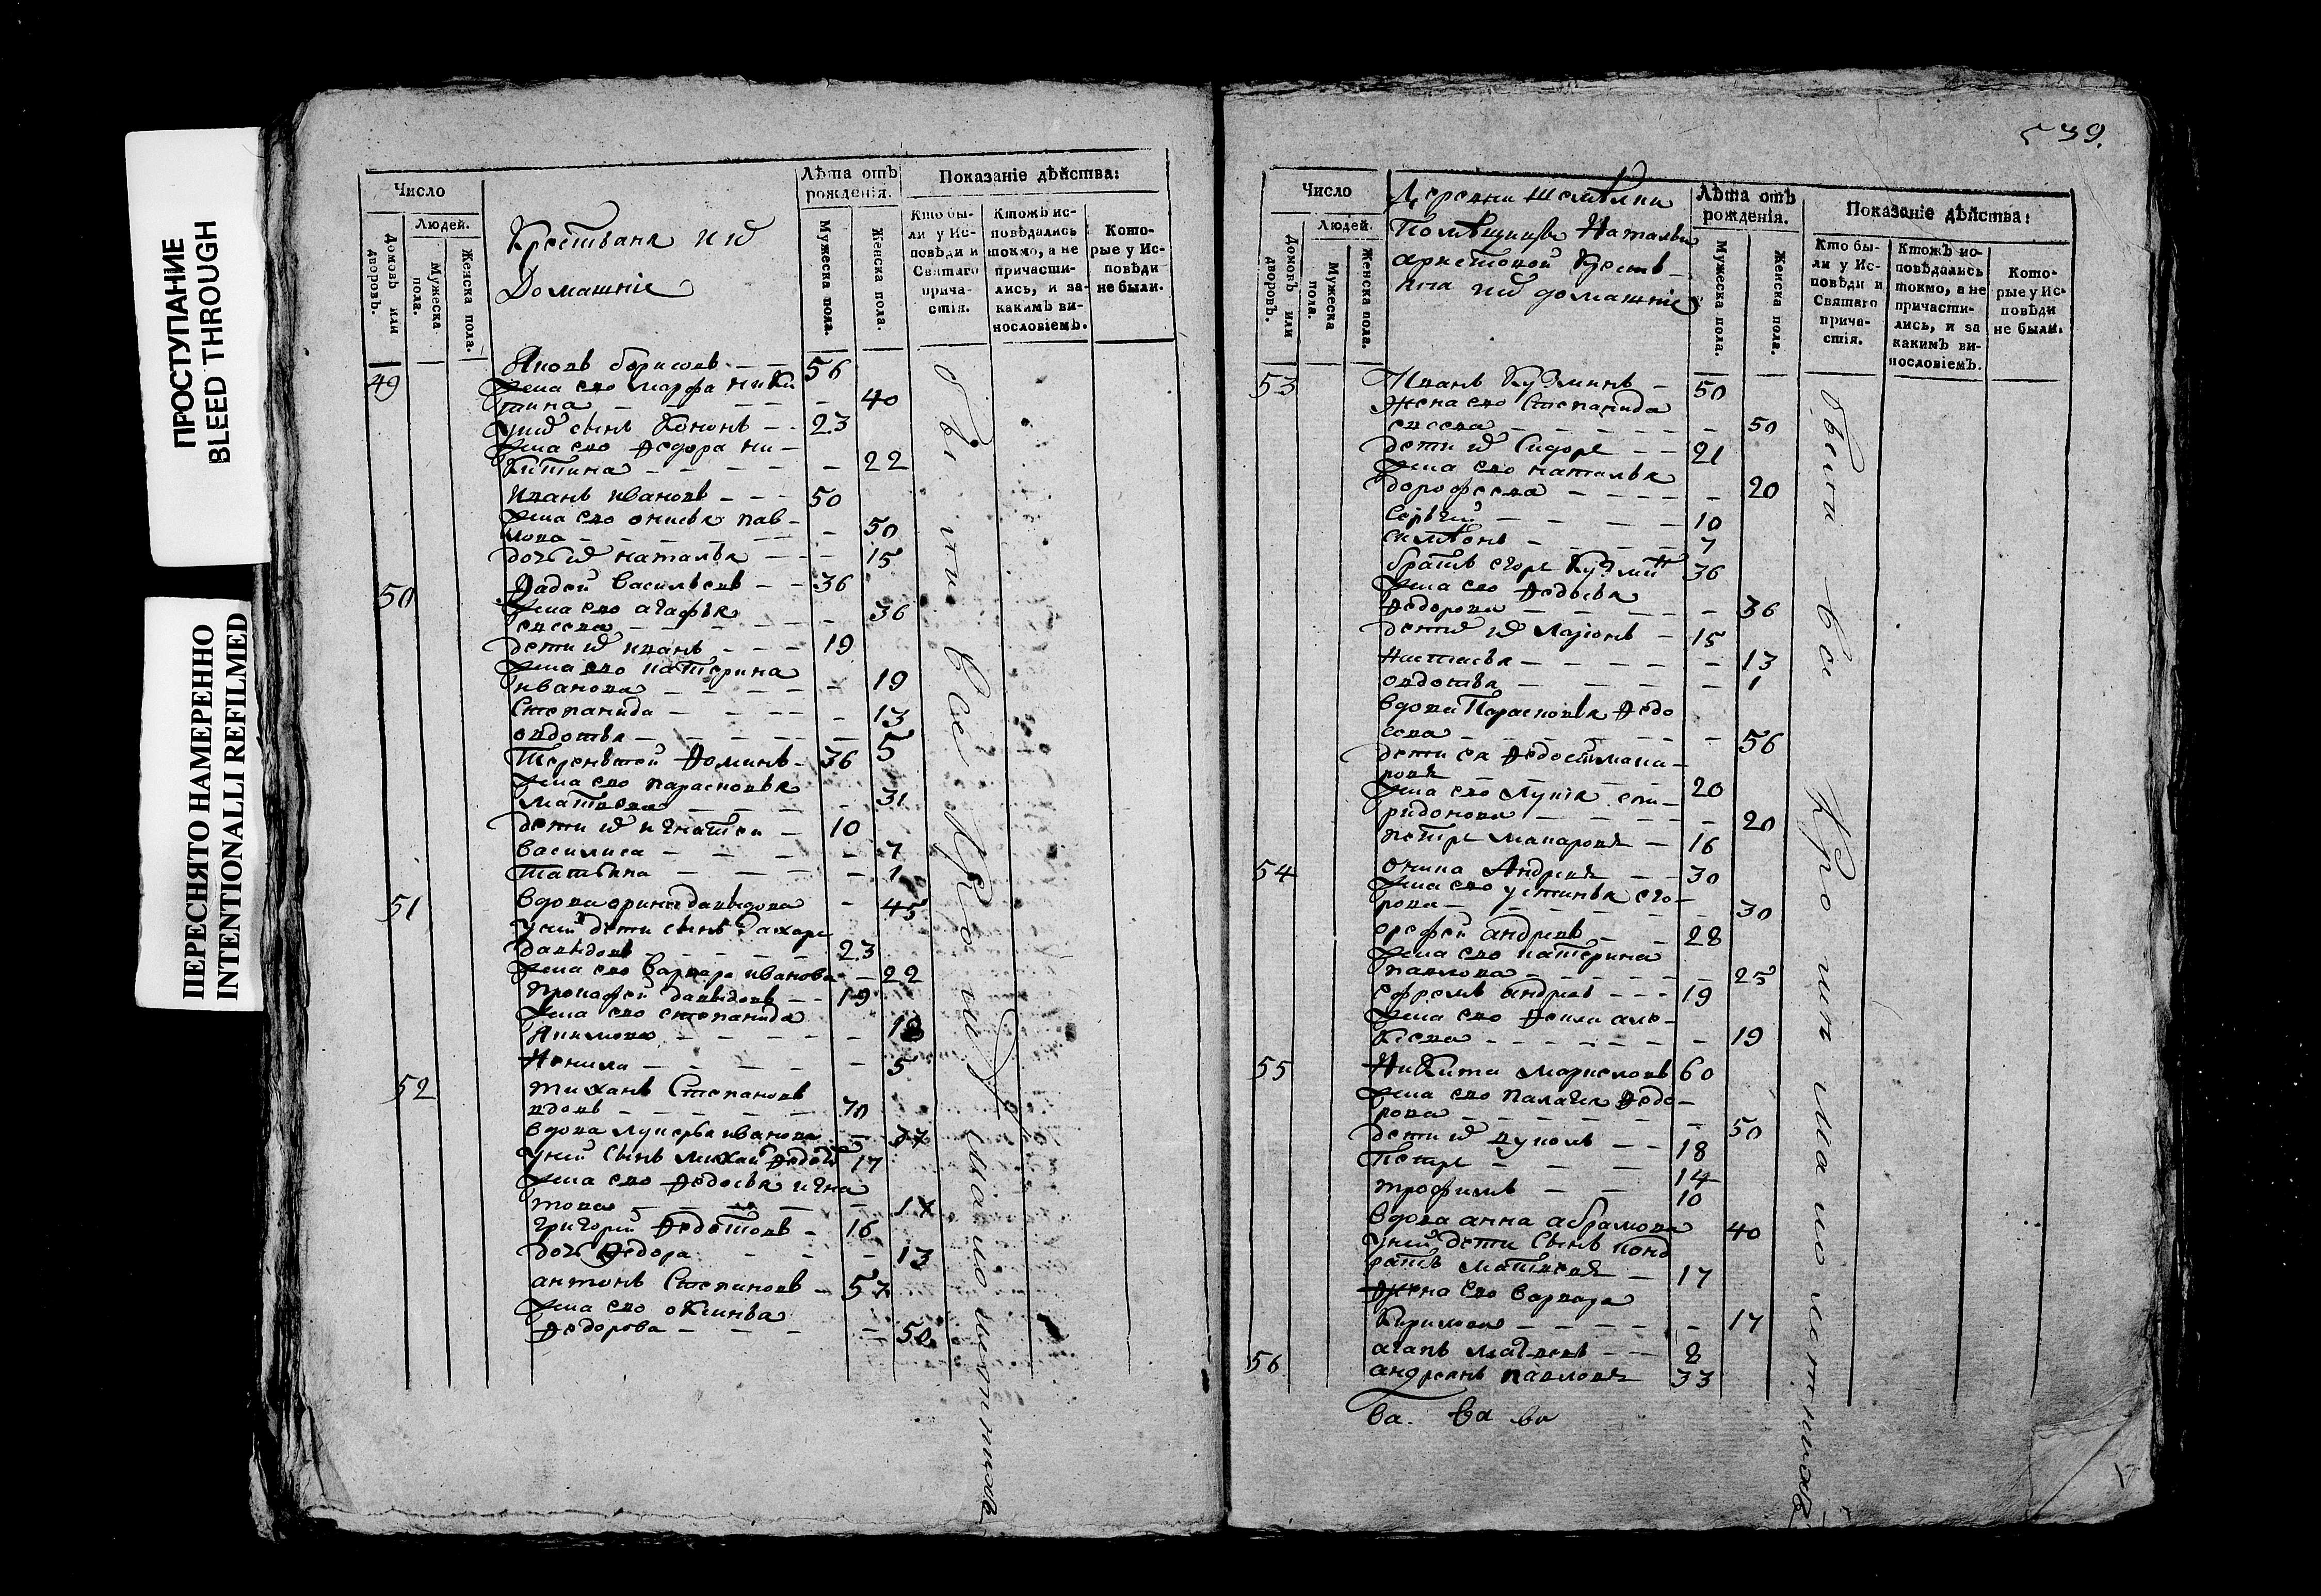 ПРОСТУПАНИЕ
BLEED THROUGH
ПЕРЕСНЯТО НАМЕРЕННО
INTENTIONALLI REFILMED
Число
Домовъ или дворовъ.
Людей.
Мужеска пола.
Женска пола.
Крестьяня ихъ
Домашніе
Лѣта отъ
рожденія.
Мужеска пола.
Женска пола.
Показаніе дѣйства:
Кто бы-
ли у Ис-
повѣди и
Святаго
прича-
стія.
Ктожъ ис-
повѣдались
токмо, а не
причасти-
лись, и за
какимъ ви-
нословіемъ.
Кото-
рые у Ис-
повѣди
не были.
49
Яковъ борисовъ 56
жена ево марфа ники
тина 40
сынъ Кононъ 23
жена ево Ѳедора ни-
китина 22
иванъ ивановъ 50
жена ево онисья пав-
лова 50
дочь наталья 15
50
Фадей васильевъ 36
жена ево агафья
евсева 36
дети ихъ иванъ 19
жена ево катерина
иванова 19
Степанида 13
овдотья 5
Терентей Ѳоминъ 36
жена ево парасковья
матвева 31
дети ихъ игнатей 10
василиса 7
татьяна 1
51
вдова орина давыдова 45
у ней дети сынъ Захаръ
давыдовъ 23
жена ево варвара иванова 22
Прокофей давыдовъ 19
жена ево степанида
Акимова 18
Ненила 5
52
Степановъ
вдовъ 70
вдова лукерья иванова 37
у ней сынъ михай 17
жена ево Ѳедосья игна
това 17
григорий Ѳедотовъ 16
дочь Ѳедора 13
антонъ Степановъ 57
жена ево оксинья
Ѳедорова 50
были все кроме малолетныхъ
539.
Число
Домовъ или дворовъ.
Людей.
Мужеска пола.
Женска пола.
Деревни
Помѣщицы Натальи
крестья-
яня ихъ домашніе
Лѣта отъ
рожденія.
Мужеска пола.
Женска пола.
Показаніе дѣйства:
Кто бы-
ли у Ис-
повѣди и
Святаго
прича-
стія.
Ктожъ ис-
повѣдались
токмо, а не
причасти-
лись, и за
какимъ ви-
нословіемъ.
Кото-
рые у Ис-
повѣди
не были.
53
Иванъ Кузминъ 50
жена ево степанида
евсева 50
дети ихъ Сидоръ 21
жена ево наталья
дорофеева 20
Сергей 10
симеонъ 7
братъ егоръ Кузмин 36
жена ево Ѳедосья
Ѳедорова 36
дети ихъ ларионъ 15
Настасья 13
овдотья 1
вдова Парасковья Ѳедо
сева 56
дети ея Ѳедосей мака-
ровъ 20
жена ево лукия спи-
ридонова 20
петръ макаровъ 16
54
оника Андревъ 30
жена ево устинья его-
рова 30
ерофей андревъ 28
жена ево катерина
павлова 25
ефремъ андревъ 19
жена ево Ѳекла але-
ксева 19
55
Никита 60
жена ево палагея Ѳедо-
рова 50
дети ихъ вуколъ 18
петръ 14
трофимъ 10
вдова анна абрамова 40
у ней дети сынъ конд
ратъ матвевъ 17
жена ево варвара
Кирилова 17
агапъ матвевъ 2
56
андреянъ павловъ 33
были все кроме малолетныхъ
ва. ва ва